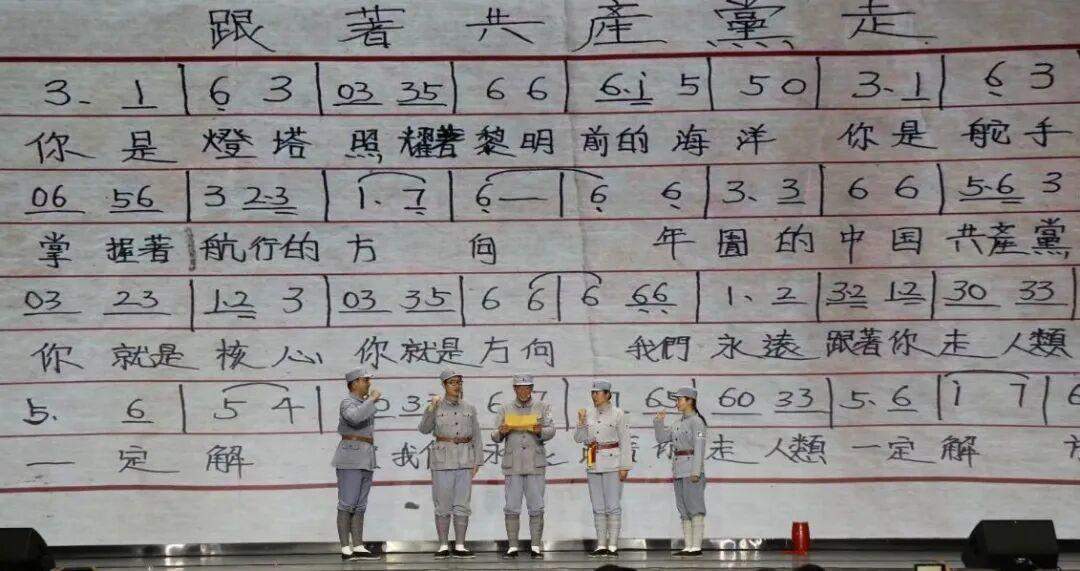 跟著共產黨走
3. 1 | 6 3 | 03 35 | 6 6 | 6.i 5 | 5 0 | 3. 1 | 6 3
你是燈塔 照耀著黎明前的海洋 你是舵手
06 56 | 3 2.3 | 1. 7 | 6 — | 6 6 | 3. 3 | 6 6 | 5.6 3
掌握著航行的方向 年 的中国共產黨
03 23 | 1.2 3 | 03 35 | 6 6 | 6 66 | 1. 2 | 32 12 | 30 33
你就是核心 你就是方向 我們永遠跟著你走人類
5. 6 | 5 4 | 65 | 60 33 | 5. 6 | 1 7 | 6
一定解 我們 走人類一定解